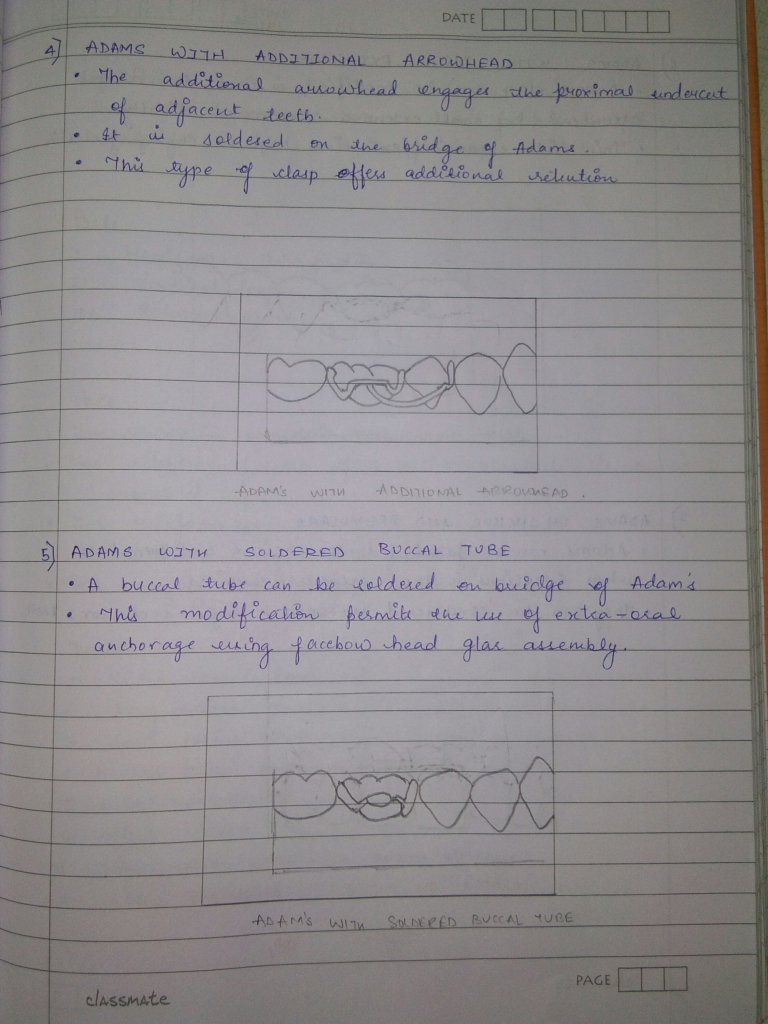 DATE
4) ADAMS WITH ADDITIONAL ARROWHEAD
• The additional arrowhead engages the proximal undercut
of adjacent teeth.
• It is soldered on the bridge of Adams.
• This type of clasp offers additional retention
ADAM'S WITH ADDITIONAL ARROWHEAD.
5) ADAMS WITH SOLDERED BUCCAL TUBE
• A buccal tube can be soldered on bridge of Adam's
• This modification permits the use of extra-oral
anchorage using facebow head gear assembly.
ADAM'S WITH SOLDERED BUCCAL TUBE
PAGE
classmate